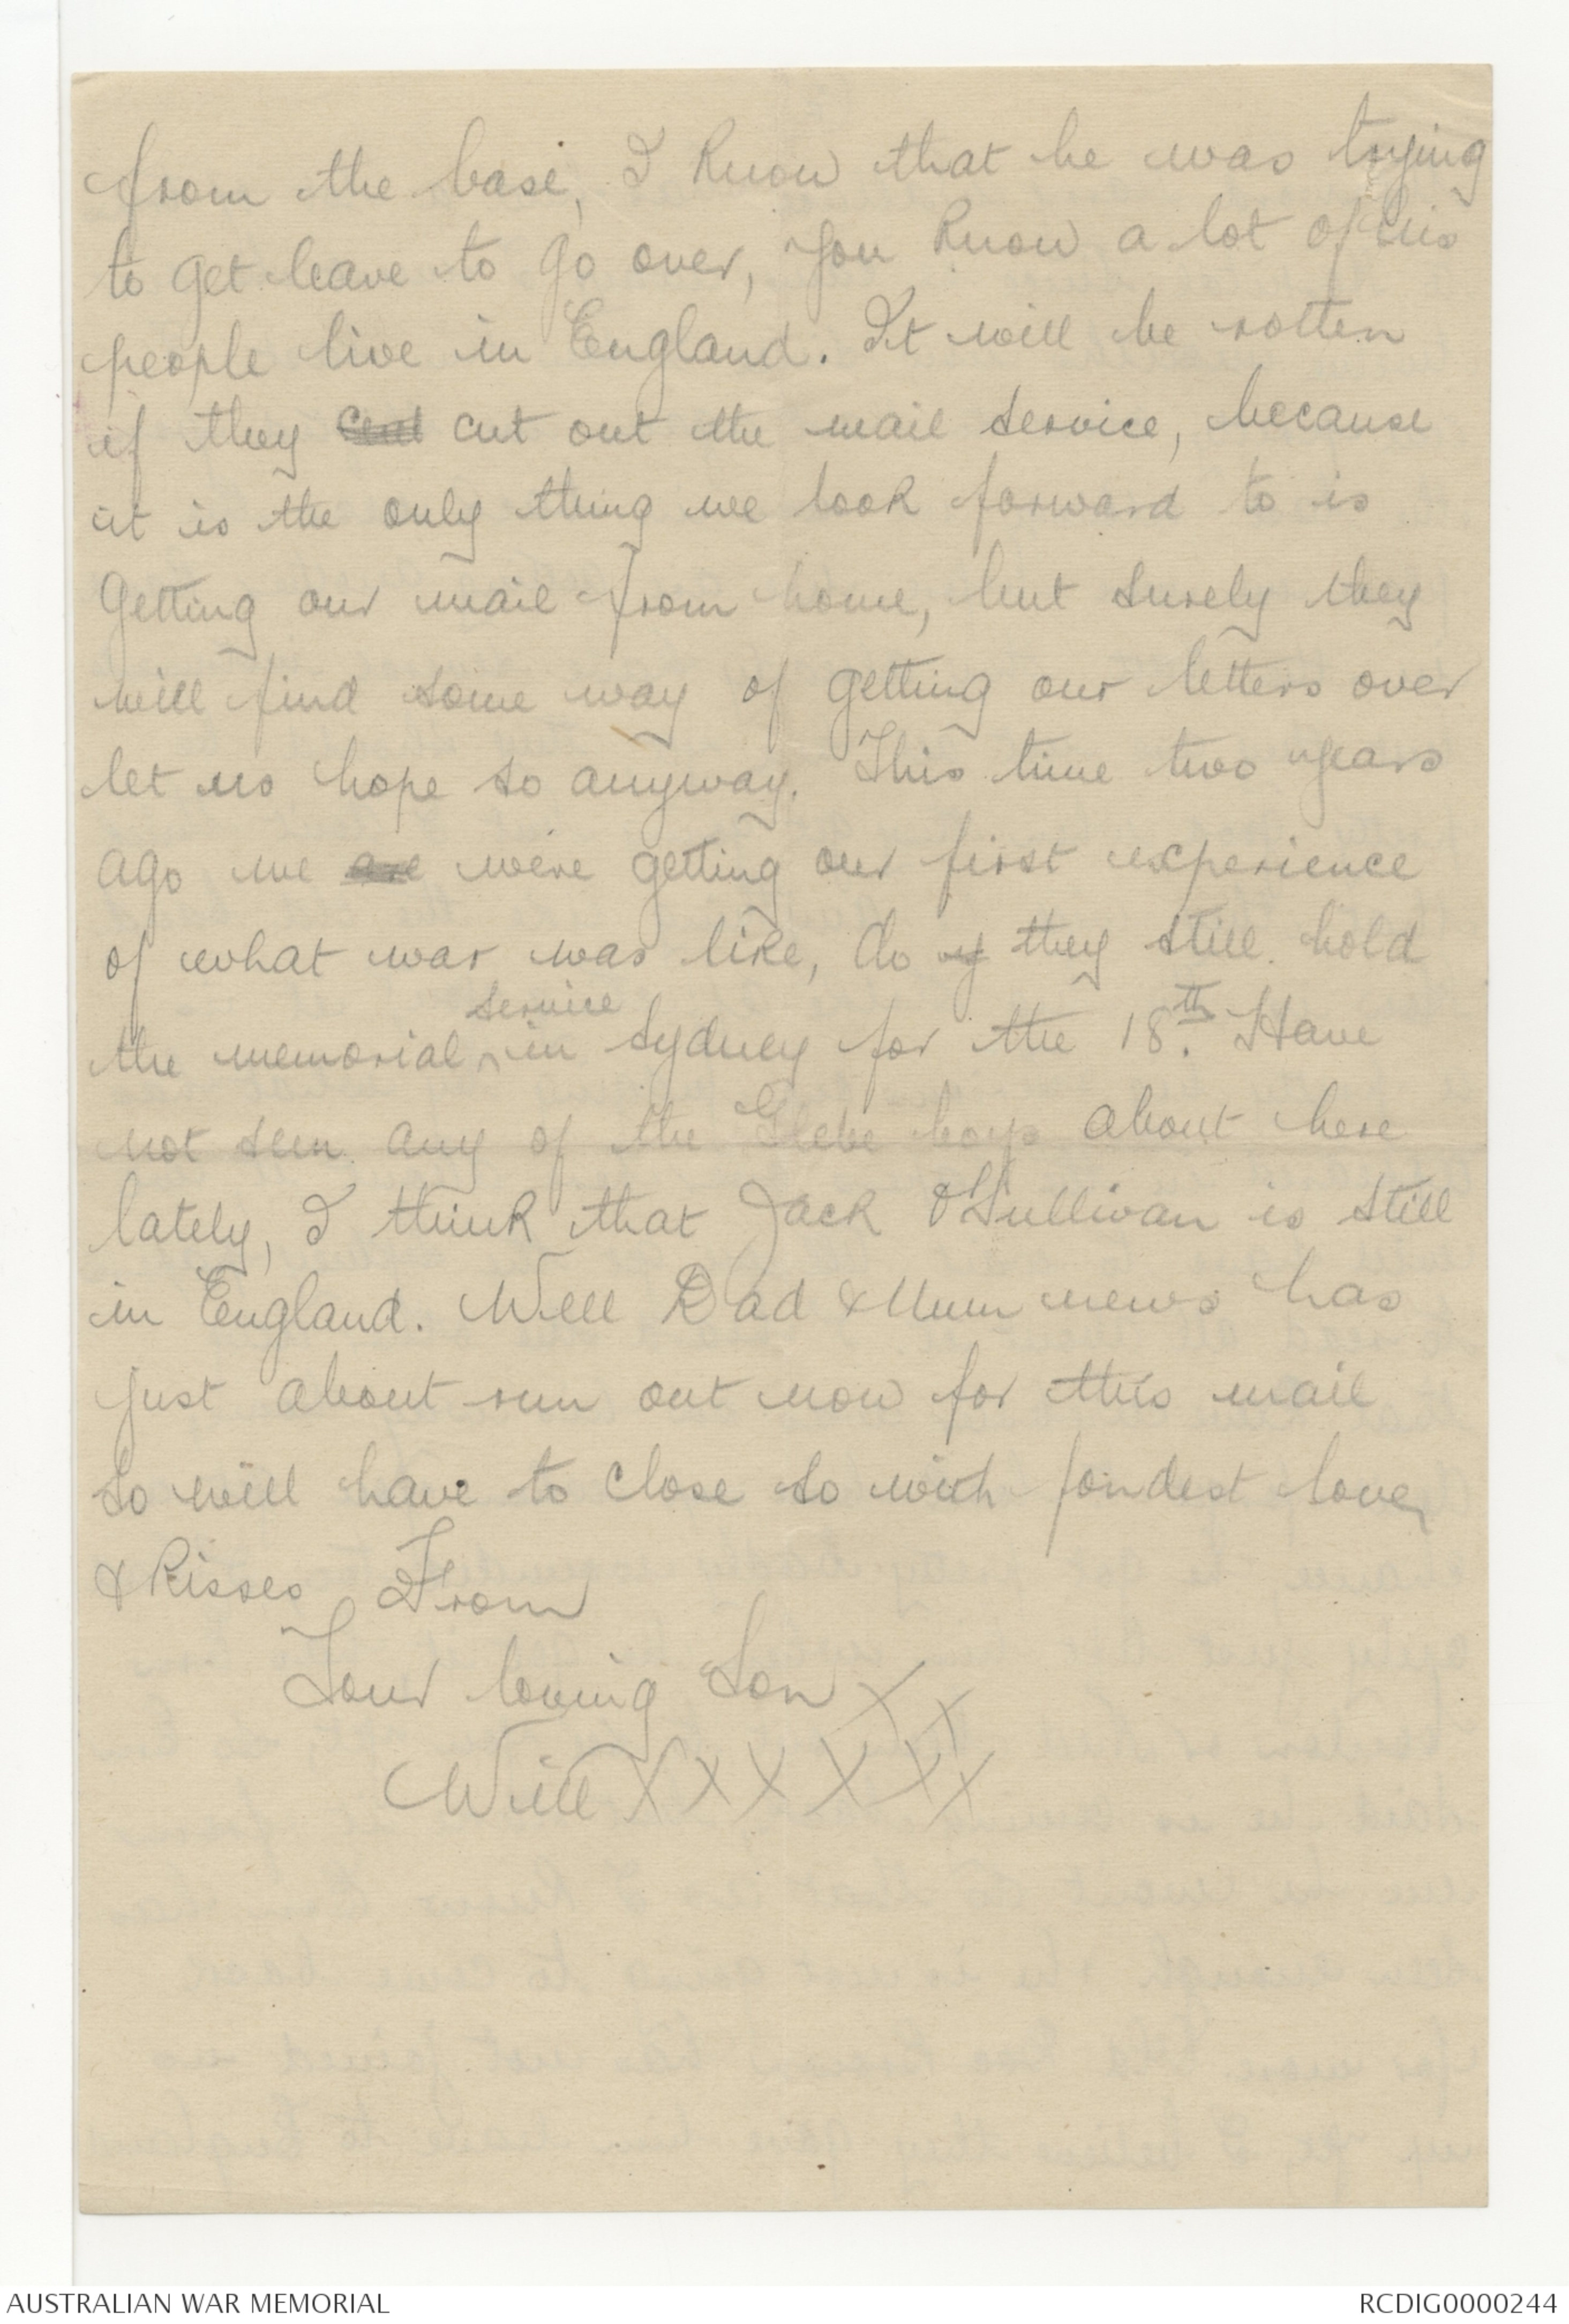 from the base, I know that he was trying
to get leave to go over, you know a lot of his
people live in England. It will be rotten
if they cut out the mail service, because
it is the only thing we look forward to is
getting our mail from home, but surely they
will find some way of getting our letters over
let us hope so anyway. This time two years
ago we are were getting our first experience
of what war was like, do y they still hold
the memorial service in Sydney for the 18th. Have
not seen any of the Glebe boys about here
lately, I think that Jack O'Sullivan is still
in England. Well Dad & Mum news has
just about run out now for this mail
so will have to close so with fondest love,
& Kisses From
Your loving Son X X
Will X X X X X X
AUSTRALIAN WAR MEMORIAL
RCDIG0000244